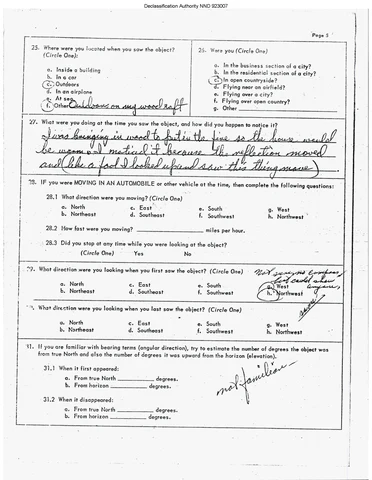 Declassification Authority NND 923007
Page 3
25. Where were you located when you saw the object?
(Circle One):
a. Inside a building
b. In a car
c. Outdoors
d. In an airplane
e. At sea
f. Other Outdoors on my wood raft
26. Were you (Circle One)
a. In the business section of a city?
b. In the residential section of a city?
c. In open countryside?
d. Flying near an airfield?
e. Flying over a city?
f. Flying over open country?
g. Other
27. What were you doing at the time you saw the object, and how did you happen to notice it?
I was bringing in wood to put in the fire so the house would
be warm and I noticed it because the reflection moved
and (like a fool I looked up and saw this thing move)
28. IF you were MOVING IN AN AUTOMOBILE or other vehicle at the time, then complete the following questions:
28.1 What direction were you moving? (Circle One)
a. North c. East e. South g. West
b. Northeast d. Southeast f. Southwest h. Northwest
28.2 How fast were you moving? miles per hour.
28.3 Did you stop at any time while you were looking at the object?
(Circle One) Yes No
29. What direction were you looking when you first saw the object? (Circle One)
Not sure no compass
a. North c. East e. South g. West
b. Northeast d. Southeast f. Southwest h. Northwest
What direction were you looking when you last saw the object? (Circle One)
a. North c. East e. South g. West
b. Northeast d. Southeast f. Southwest h. Northwest
31. If you are familiar with bearing terms (angular direction), try to estimate the number of degrees the object was
from true North and also the number of degrees it was upward from the horizon (elevation).
31.1 When it first appeared:
a. From true North degrees.
b. From horizon degrees.
not familiar
31.2 When it disappeared:
a. From true North degrees.
b. From horizon degrees.